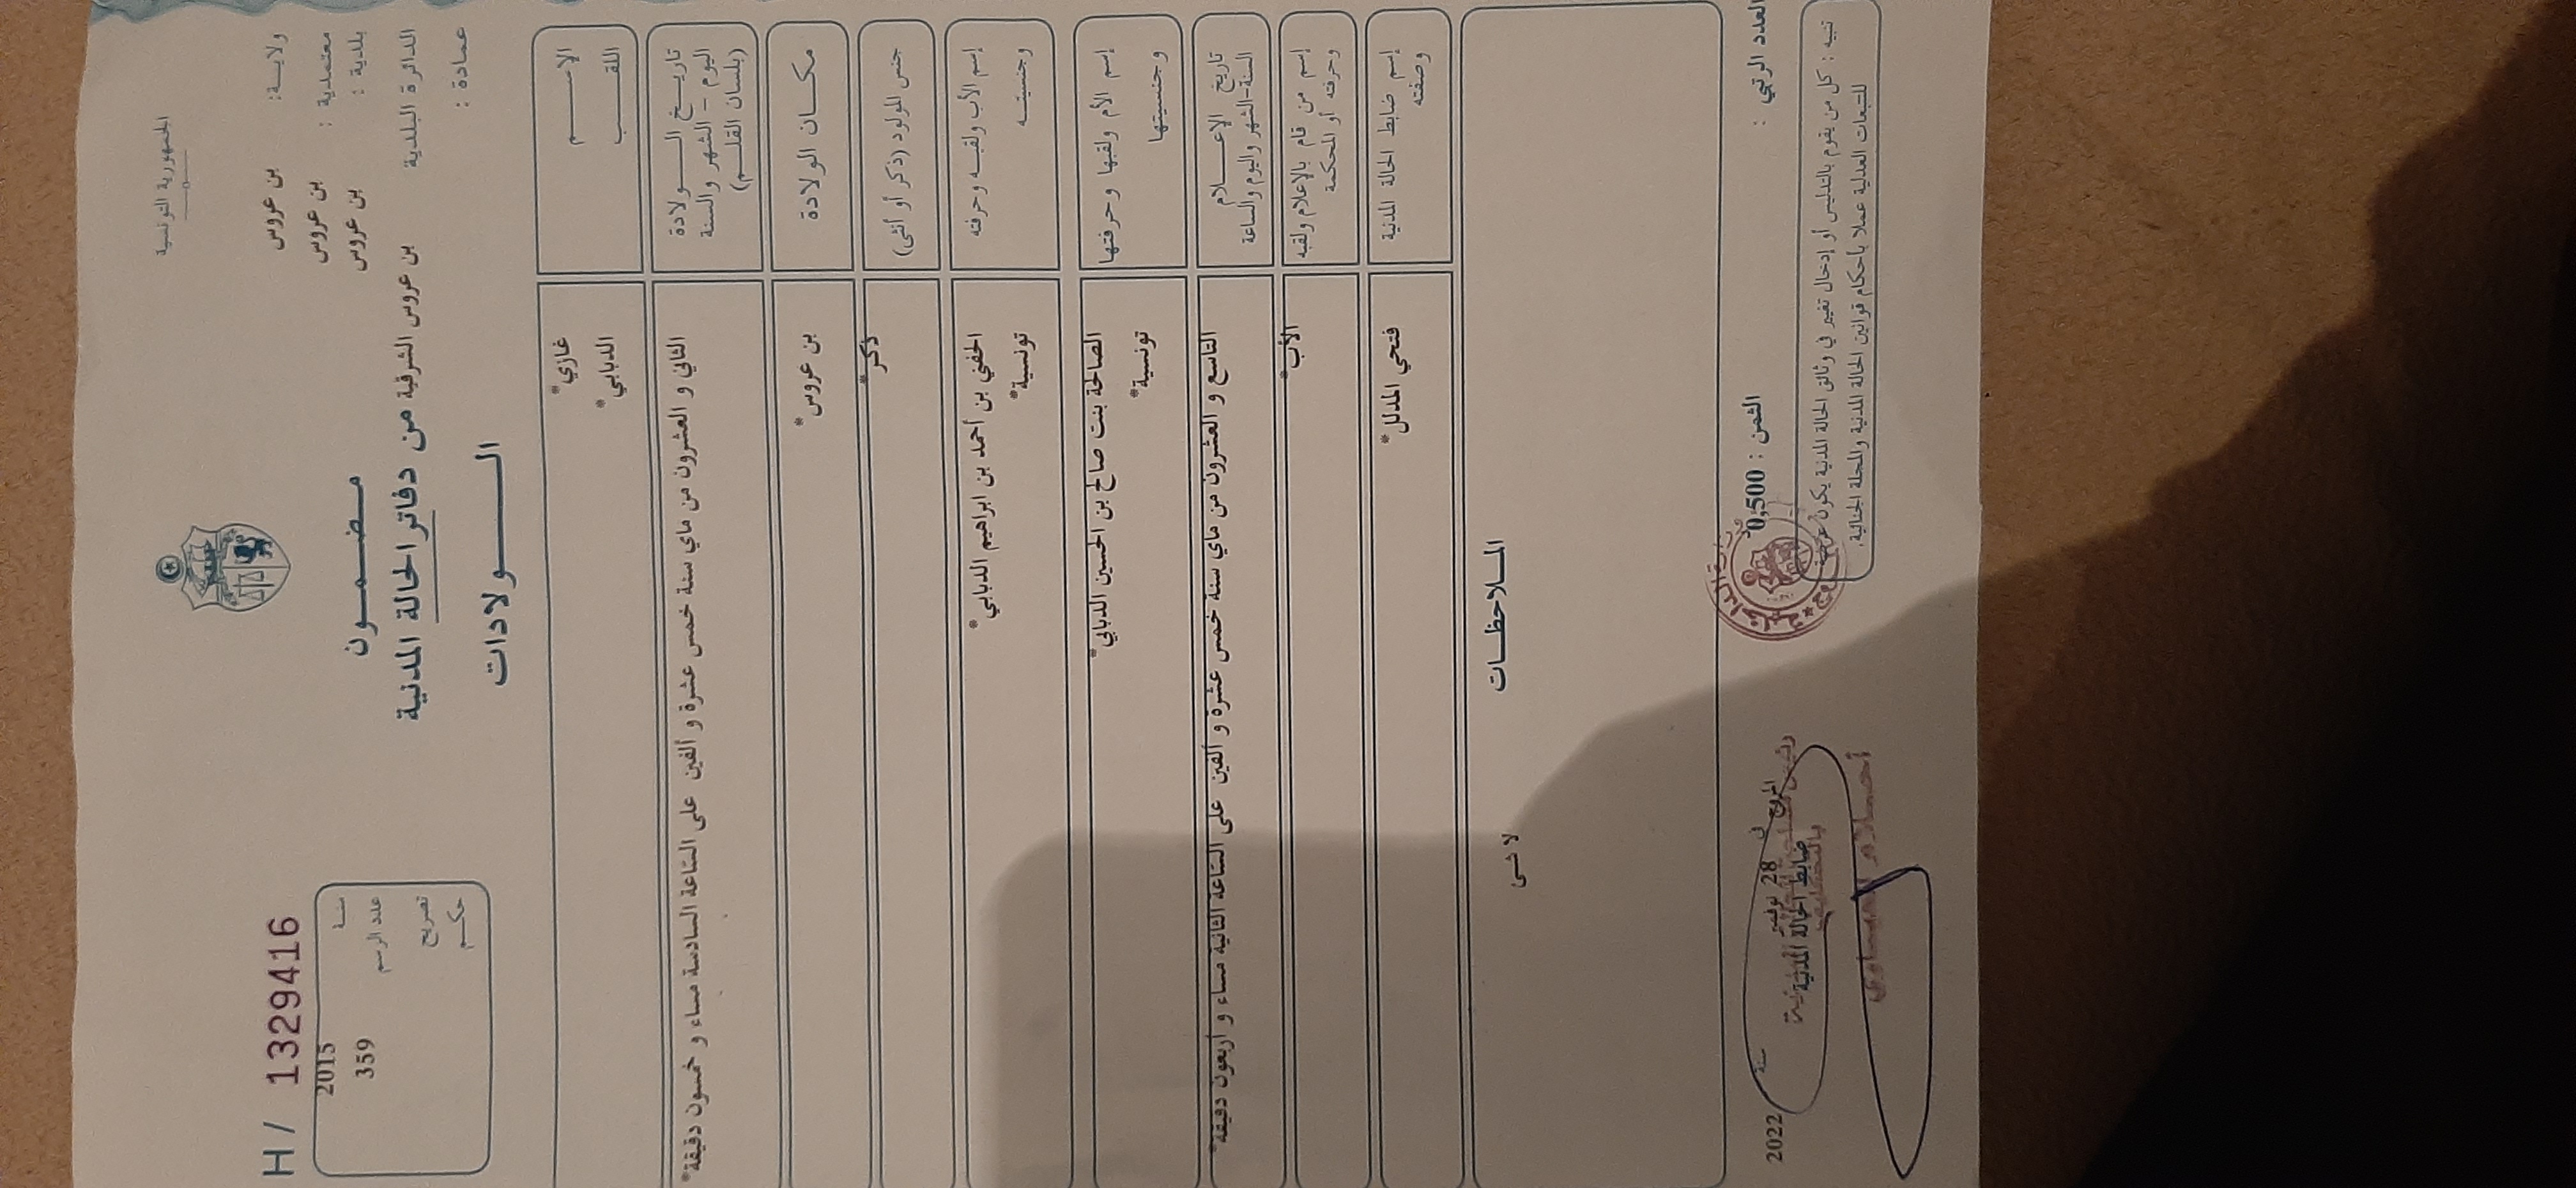 الجمهورية التونسية
ولايــة: بن عروس
معتمدية : بن عروس
بلدية : بن عروس
الدائرة البلدية بن عروس الشرقية
عمادة :
H / 1329416
سنة 2015
عدد الرسم 359
تصريح
حكم
مضمون
من دفاتر الحالة المدنية
الولادات
الاسم غازي*
اللقب الدبابي*
تاريخ الولادة
اليوم - الشهر والسنة
(بلسان القلم)
الثاني و العشرون من ماي سنة خمس عشرة و ألفين على السّاعة السادسة مساء و خمسون دقيقة*
مكان الولادة بن عروس*
جنس المولود (ذكر أو أنثى) ذكر*
إسم الأب ولقبه وحرفته الحفني بن أحمد بن ابراهيم الدبابي*
وجنسيته تونسية*
إسم الأم ولقبها وحرفتها الصالحة بنت صالح بن الحسين الدبابي*
وجنسيتها تونسية*
تاريخ الإعلام
السنة-الشهر واليوم والساعة
التاسع و العشرون من ماي سنة خمس عشرة و ألفين على السّاعة الثانية مساء و أربعون دقيقة*
إسم من قام بالإعلام ولقبه
وحرفته أو المحكمة
الأب*
إسم ضابط الحالة المدنية
وصفته
فتحي المدلل*
الملاحظات
لا شى
العدد الرتبي :
الثمن : 0,500
المروج في 28 نوفمبر سنة 2022
ضابط الحالة المدنية
تنبيه : كل من يقوم بالتدليس أو إدخال تغيير في وثائق الحالة المدنية يكون عرضة
للتتبعات العدلية عملا بأحكام قوانين الحالة المدنية والمجلة الجنائية.